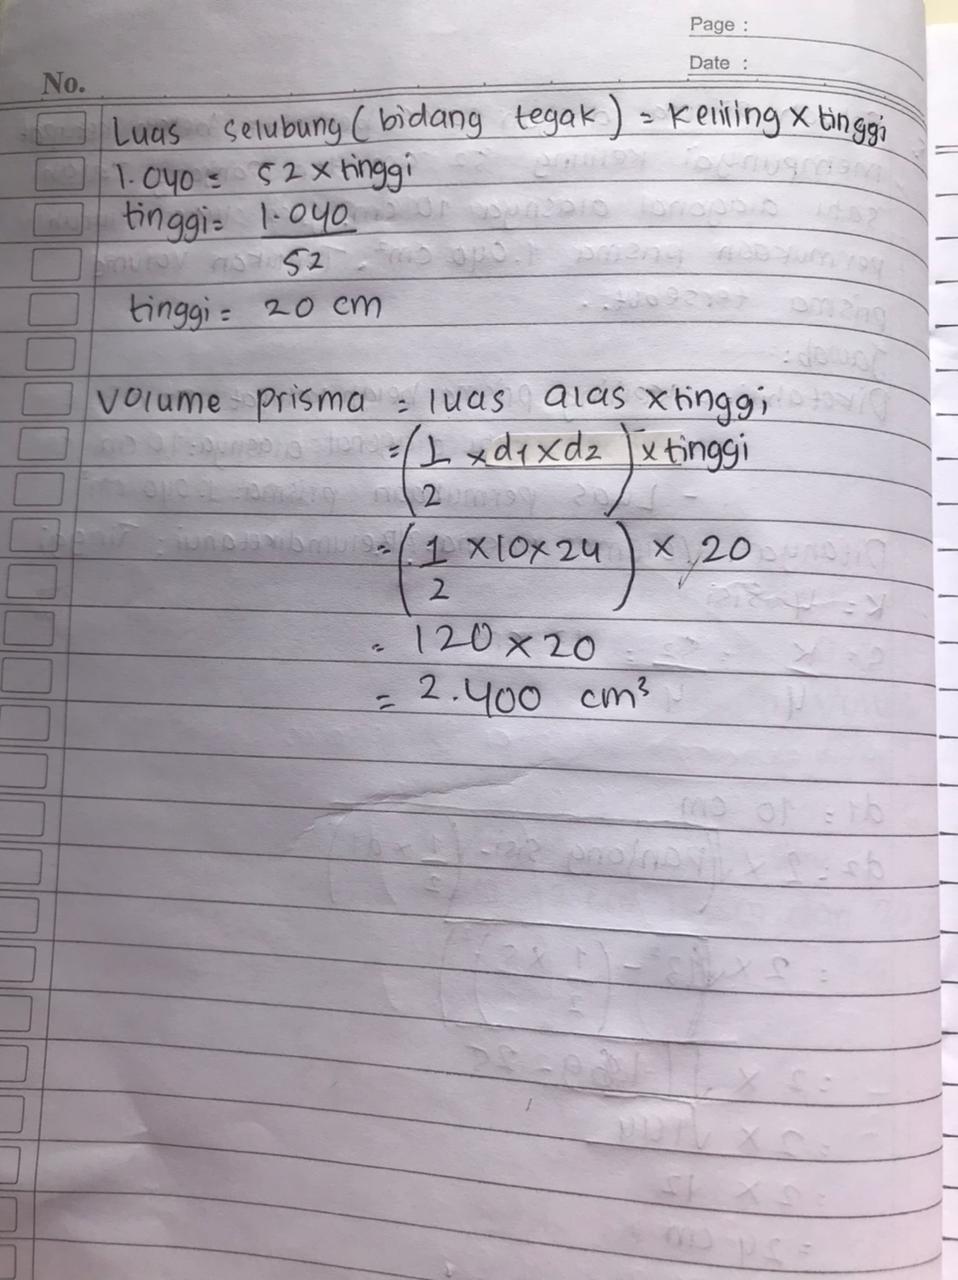 Page :
Date :
No.
Luas selubung (bidang tegak) = keliling x tinggi
1.040 = 52 x tinggi
tinggi = 1.040
52
tinggi = 20 cm
Volume prisma = luas alas x tinggi
= (1/2 x d1 x d2) x tinggi
= (1/2 x 10 x 24) x 20
= 120 x 20
= 2.400 cm³